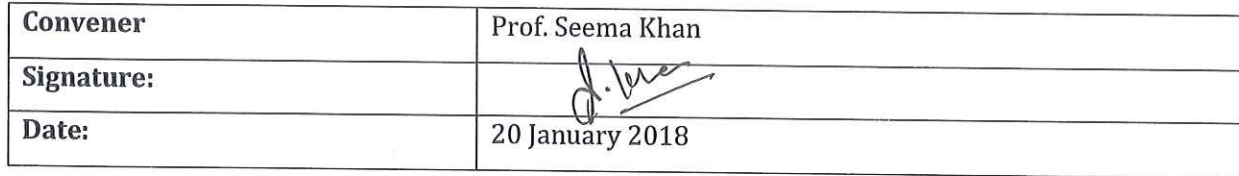 Convener Prof. Seema Khan
Signature:
Date: 20 January 2018